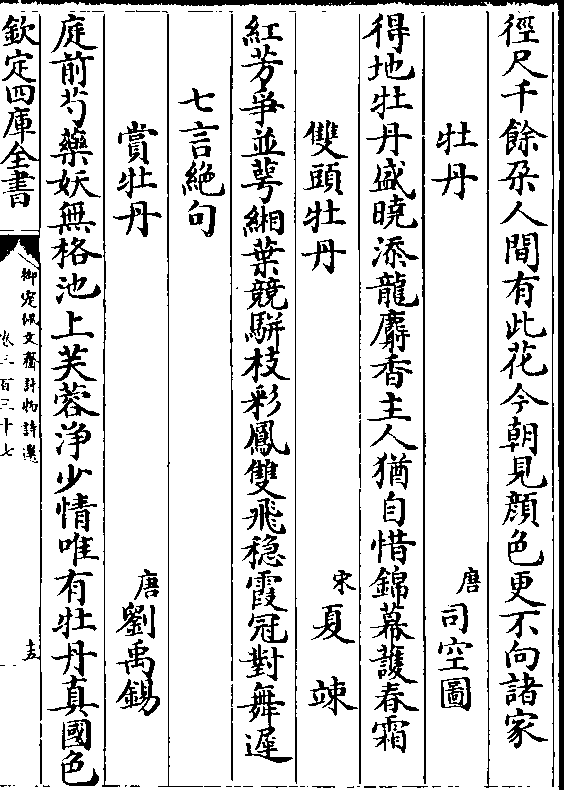 徑尺千餘朶人間有此花今朝見顔色更不向諸家
牡丹
唐司空圖
得地牡丹盛曉添龍麝香主人猶自惜錦幕護春霜
雙頭牡丹
宋夏竦
紅芳爭並萼緗葉競駢枝彩鳳雙飛穏霞冠對舞遲
七言絶句
賞牡丹
唐劉禹錫
庭前芍藥妖無格池上芙蓉浄少情唯有牡丹真國色
欽定四庫全書
御定佩文齋詠物詩選
卷三百三十七